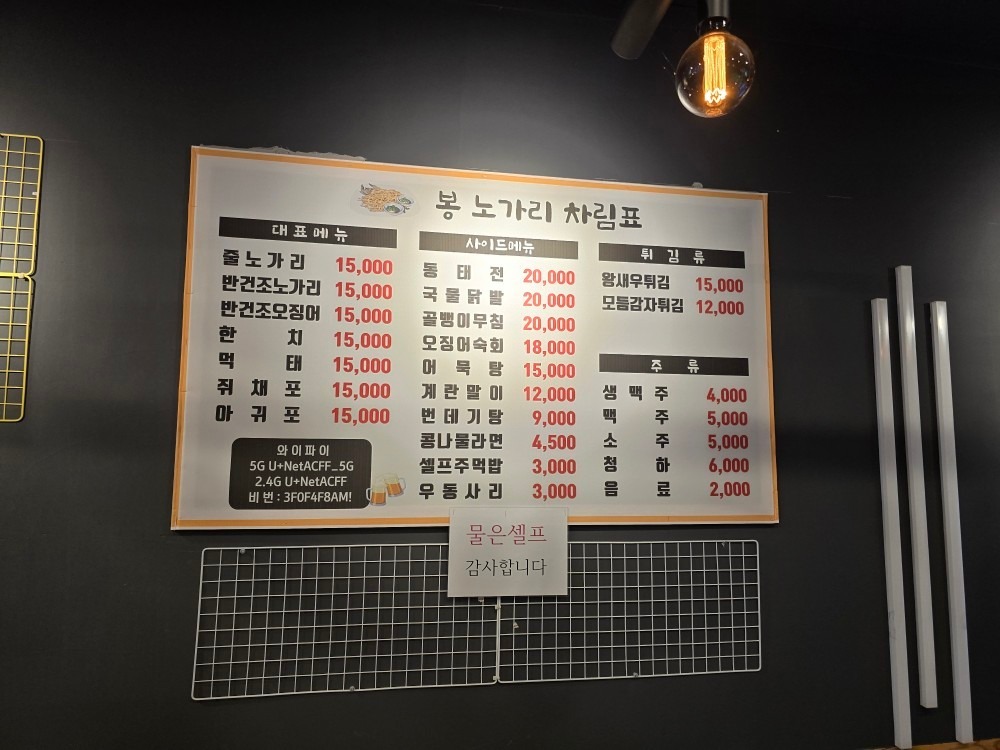 봉 노가리 차림표
대표메뉴
줄노가리 15,000
반건조노가리 15,000
반건조오징어 15,000
한치 15,000
먹태 15,000
쥐채포 15,000
아귀포 15,000
와이파이
5G U+NetACFF_5G
2.4G U+NetACFF
비번 : 3F0F4F8AM!
사이드메뉴
동태전 20,000
국물닭발 20,000
골뱅이무침 20,000
오징어숙회 18,000
어묵탕 15,000
계란말이 12,000
번데기탕 9,000
콩나물라면 4,500
셀프주먹밥 3,000
우동사리 3,000
튀김류
왕새우튀김 15,000
모듬감자튀김 12,000
주류
생맥주 4,000
맥주 5,000
소주 5,000
청하 6,000
음료 2,000
물은셀프
감사합니다